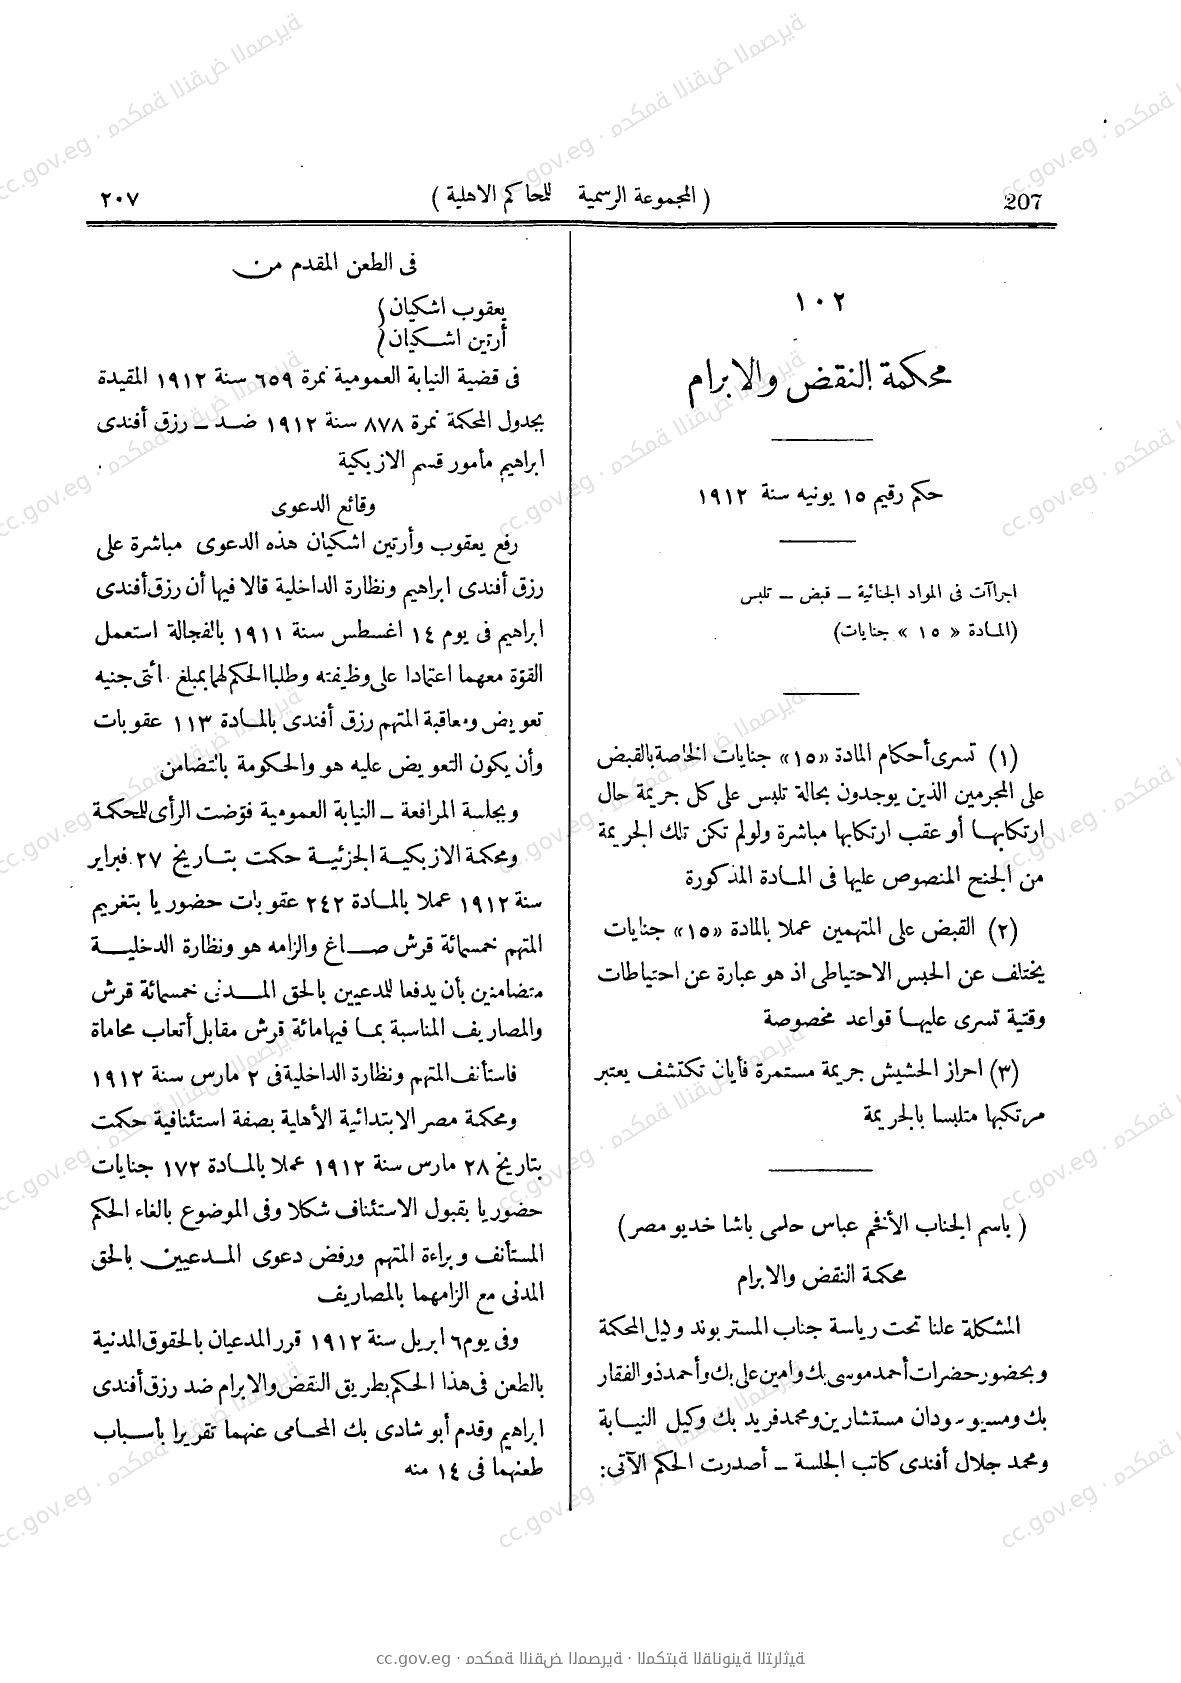 207
( المجموعة الرسمية للمحاكم الاهلية )
٢٠٧
١٠٢
محكمة النقض والابرام
حكم رقيم ١٥ يونيه سنة ١٩١٢
اجراآت فى المواد الجنائية ــ قبض ــ تلبس
(المـادة « ١٥ » جنايات)
(١) تسرى أحكام المادة «١٥» جنايات الخاصة بالقبض
على المجرمين الذين يوجدون بحالة تلبس على كل جريمة حال
ارتكابهـا أو عقب ارتكابها مباشرة ولولم تكن تلك الجريمة
من الجنح المنصوص عليها فى المـادة المذكورة
(٢) القبض على المتهمين عملا بالمادة «١٥» جنايات
يختلف عن الحبس الاحتياطى اذ هو عبارة عن احتياطات
وقتية تسرى عليهـا قواعد مخصوصة
(٣) احراز الحشيش جريمة مستمرة فأيان تكتشف يعتبر
مرتكبها متلبسا بالجريمة
( باسم الجناب الأفخم عباس حلمى باشا خديو مصر)
محكمة النقض والابرام
المشكلة علنا تحت رياسة جناب المستر بوند وكيل المحكمة
وبحضور حضرات أحمد موسى بك وامين على بك وأحمد ذو الفقار
بك ومسيو سودان مستشارين ومحمد فريد بك وكيل النيـابة
ومحمد جلال أفندى كاتب الجلسة ــ أصدرت الحكم الآتى:
فى الطعن المقدم من
يعقوب اشكيان
أرتين اشـكيان
فى قضية النيابة العمومية نمرة ٦٥٩ سنة ١٩١٢ المقيدة
بجدول المحكمة نمرة ٨٧٨ سنة ١٩١٢ ضـد ــ رزق أفندى
ابراهيم مأمور قسم الازبكية
وقائع الدعوى
رفع يعقوب وأرتين اشكيان هذه الدعوى مباشرة على
رزق أفندى ابراهيم ونظارة الداخلية قالا فيها أن رزق أفندى
ابراهيم فى يوم ١٤ اغسطس سنة ١٩١١ بالفجالة استعمل
القوّة معهما اعتمادا على وظيفته وطلبا الحكم لهما بمبلغ ائتى جنيه
تعويض ومعاقبة المتهم رزق أفندى بالمـادة ١١٣ عقوبات
وأن يكون التعويض عليه هو والحكومة بالتضامن
وبجلسة المرافعة ــ النيابة العمومية فوّضت الرأى للمحكمة
ومحكمة الازبكيـة الجزئيـة حكمت بتـاريخ ٢٧ فبراير
سنة ١٩١٢ عملا بالمـادة ٢٤٢ عقوبات حضوريا بتغريم
المتهم خمسمائة قرش صـاغ والزامه هو ونظارة الدخليـة
متضامنين بأن يدفعا للمدعيين بالحق المـدنى خمسمائة قرش
والمصاريف المناسبة بمـا فيها مائة قرش مقابل أتعاب محاماة
فاستأنف المتهم ونظارة الداخلية فى ٢ مارس سنة ١٩١٢
ومحكمة مصر الابتدائية الأهلية بصفة استئنافية حكمت
بتاريخ ٢٨ مارس سنة ١٩١٢ عملا بالمـادة ١٧٢ جنايات
حضوريا بقبول الاستئناف شكلا وفى الموضوع بالغاء الحكم
المستأنف وبراءة المتهم ورفض دعوى المـدعيين بالحق
المدنى مع الزامهما بالمصاريف
وفى يوم ٦ ابريل سنة ١٩١٢ قرر المدعيان بالحقوق المدنية
بالطعن فى هذا الحكم بطريق النقض والابرام ضد رزق أفندى
ابراهيم وقدم أبو شادى بك المحـامى عنهما تقريرا بأسـباب
طعنهما فى ١٤ منه
cc.gov.eg · محكمة النقض المصرية · المكتبة القانونية التراثية